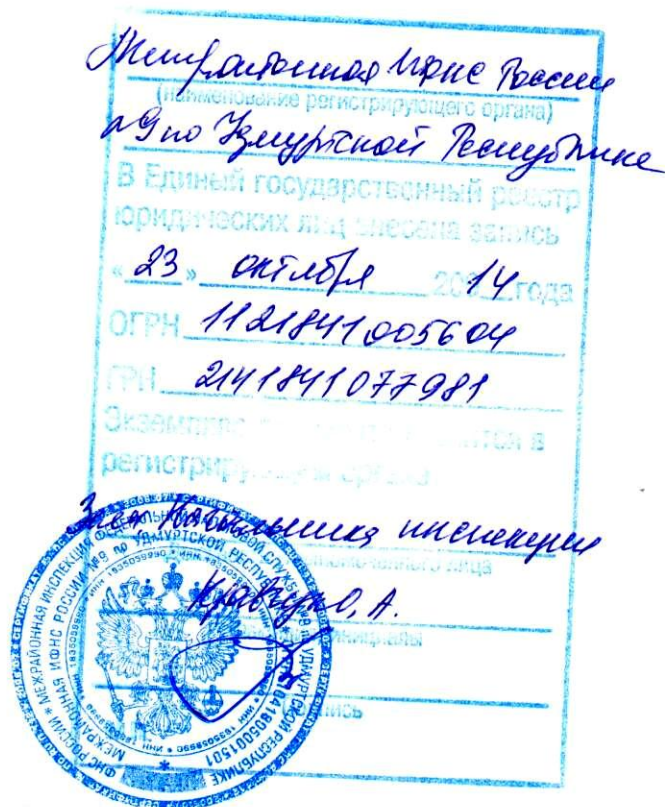 Межрайонная ИФНС России
(наименование регистрирующего органа)
№9 по Удмуртской Республике
В Единый государственный реестр
юридических лиц внесена запись
«23» октября 2014 года
ОГРН 1121841005604
ГРН 2141841077981
Экземпляр в
регистрирующем органе
Зам Начальника инспекции
лица
Кравчук О, А.
МЕЖРАЙОННАЯ ИФНС РОССИИ №9 по УДМУРТСКОЙ РЕСПУБЛИКЕ
ФНС РОССИИ * МЕЖРАЙОННАЯ ИНСПЕКЦИЯ ФЕДЕРАЛЬНОЙ НАЛОГОВОЙ СЛУЖБЫ №9 по УДМУРТСКОЙ РЕСПУБЛИКЕ
* ИНН 1835059990 * ИНН